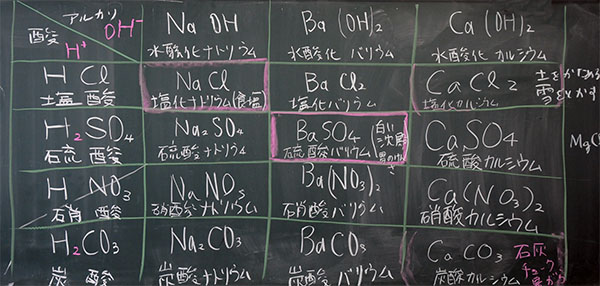 アルカリ OH⁻
酸 H⁺
Na OH
水酸化ナトリウム
Ba (OH)₂
水酸化 バリウム
Ca (OH)₂
水酸化 カルシウム
H Cl
塩 酸
NaCl
塩化ナトリウム(食塩)
Ba Cl₂
塩化バリウム
Ca Cl₂
塩化カルシウム
土をかためる
雪をとかす
H₂SO₄
硫 酸
Na₂SO₄
硫酸ナトリウム
BaSO₄
硫酸バリウム
白い
沈殿
CaSO₄
硫酸カルシウム
MgC
H NO₃
硝 酸
Na NO₃
硝酸ナトリウム
Ba(NO₃)₂
硝酸バリウム
Ca(NO₃)₂
硝酸カルシウム
H₂CO₃
炭 酸
Na₂CO₃
炭酸ナトリウム
BaCO₃
炭酸 バリウム
Ca CO₃
炭酸カルシウム
石灰
チョーク